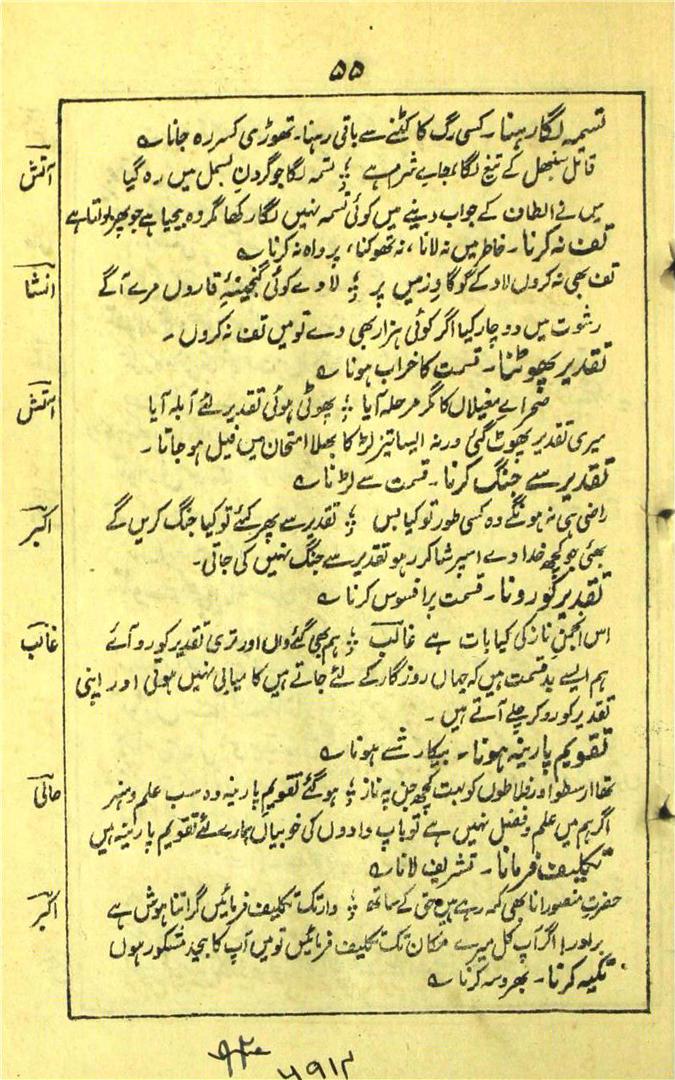 ۵۵
تسمہ لگا رہنا۔ کسی رگ کا کٹنے سے باقی رہنا۔ تھوڑی کسر رہ جانا ؎
قاتل سنبھل کے تیغ لگا جائے شرم ہے ؛ تسمہ لگا جو گردنِ بسمل میں رہ گیا آتشؔ
میں نے الطاف کے جواب دینے میں کوئی تسمہ نہیں لگا رکھا مگر وہ بیحیا ہے جو پھر
تف نہ کرنا۔ خاطر میں نہ لانا، نہ تھوکنا، پرواہ نہ کرنا ؎
تف بھی نہ کروں لاد کے گو گاوِ زمیں پر ؛ لاوے کوئی گنجینۂ قاروں مرے آگے انشاؔ
رشوت میں دو چار کیا اگر کوئی ہزار بھی دے تو میں تف نہ کروں۔
تقدیر پھوٹنا۔ قسمت کا خراب ہونا ؎
صحرائے مغیلاں کا گر مرحلہ آیا ؛ پھوٹی ہوئی تقدیر لئے آبلہ آیا آتشؔ
میری تقدیر پھوٹ گئی ورنہ ایسا تیز لڑکا بھلا امتحان میں فیل ہو جاتا۔
تقدیر سے جنگ کرنا۔ قسمت سے لڑنا ؎
راضی ہی نہ ہونگے وہ کسی طور تو کیا بس ؛ تقدیر سے پھر کہئے تو کیا جنگ کریں گے اکبرؔ
بھئی جو کچھ خدا دے اسپر شاکر رہو تقدیر سے جنگ نہیں کی جاتی۔
تقدیر کو رونا۔ قسمت پر افسوس کرنا ؎
اس انجمنِ ناز کی کیا بات ہے غالبؔ ؛ ہم بھی گئے واں اور تری تقدیر کو رو آئے غالبؔ
ہم ایسے بد قسمت ہیں کہ جہاں روزگار کے لئے جاتے ہیں کامیابی نہیں ہوتی اور اپنی
تقدیر کو رو کر چلے آتے ہیں۔
تقویم پارینہ ہونا۔ بیکار شے ہونا ؎
تھا ارسطو اور فلاطوں کو بہت کچھ جن پہ ناز ؛ ہو گئے تقویمِ پارینہ وہ سب علم و ہنر حالیؔ
اگر ہم میں علم و فضل نہیں ہے تو باپ دادوں کی خوبیاں ہمارے لئے تقویم پارینہ ہیں
تکلیف فرمانا۔ تشریف لانا ؎
حضرتِ منصور انا بھی کہہ رہے ہیں حق کے ساتھ ؛ دار تک تکلیف فرمائیں گر اتنا ہوش ہے اکبرؔ
برادر! اگر آپ کل میرے مکان تک تکلیف فرمائیں تو میں آپ کا بیحد مشکور ہوں
تکیہ کرنا۔ بھروسہ کرنا ؎
۶۹۱۲